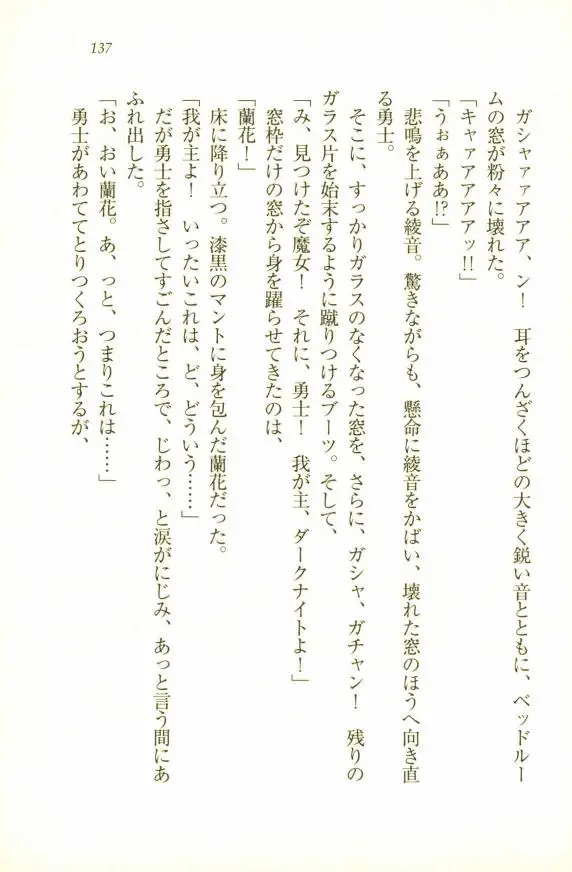 137
ガシャァァアアア、ン！　耳をつんざくほどの大きく鋭い音とともに、ベッドルー
ムの窓が粉々に壊れた。
「キャァアアアアッ!!」
「うぉぁああ!?」
悲鳴を上げる綾音。驚きながらも、懸命に綾音をかばい、壊れた窓のほうへ向き直
る勇士。
そこに、すっかりガラスのなくなった窓を、さらに、ガシャ、ガチャン！　残りの
ガラス片を始末するように蹴りつけるブーツ。そして、
「み、見つけたぞ魔女！　それに、勇士！　我が主、ダークナイトよ！」
窓枠だけの窓から身を躍らせてきたのは、
「蘭花！」
床に降り立つ。漆黒のマントに身を包んだ蘭花だった。
「我が主よ！　いったいこれは、ど、どういう……」
だが勇士を指さしてすごんだところで、じわっ、と涙がにじみ、あっと言う間にあ
ふれ出した。
「お、おい蘭花。あ、っと、つまりこれは……」
勇士があわててとりつくろおうとするが、